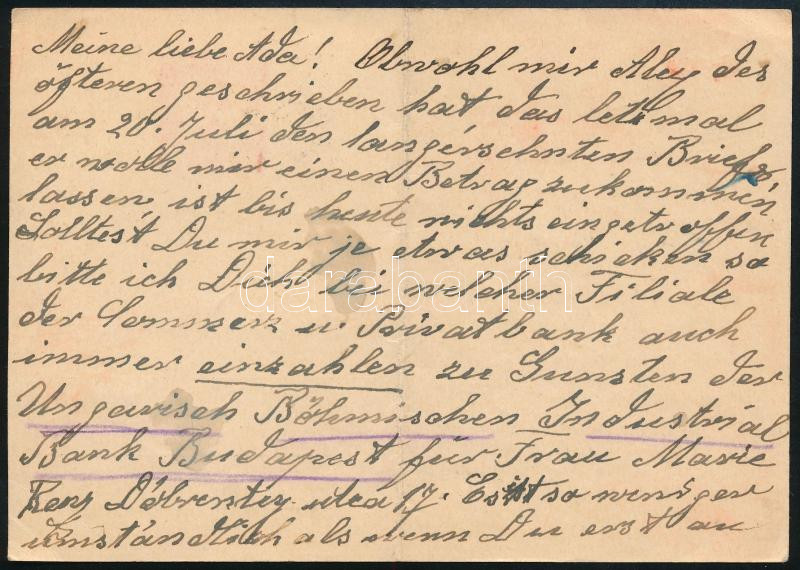 Meine liebe Ada! Obwohl mir Alex des
öfteren geschrieben hat das letzmal
am 20. Juli den langérsehnten Brief,
er wolle mir einen Betrag zukommen
lassen, ist bis heute nichts eingetroffen
Solltest Du mir je etwas schicken so
bitte ich Dich bei welcher Filiale
der Commerz u. Privatbank auch
immer einzahlen zu Gunsten der
Ungarisch Böhmischen Industrial
Bank Budapest für Frau Marie
Döbrentey utca 17. Es ist so weniger
umständlich als wenn Du erst an
darabanth.com